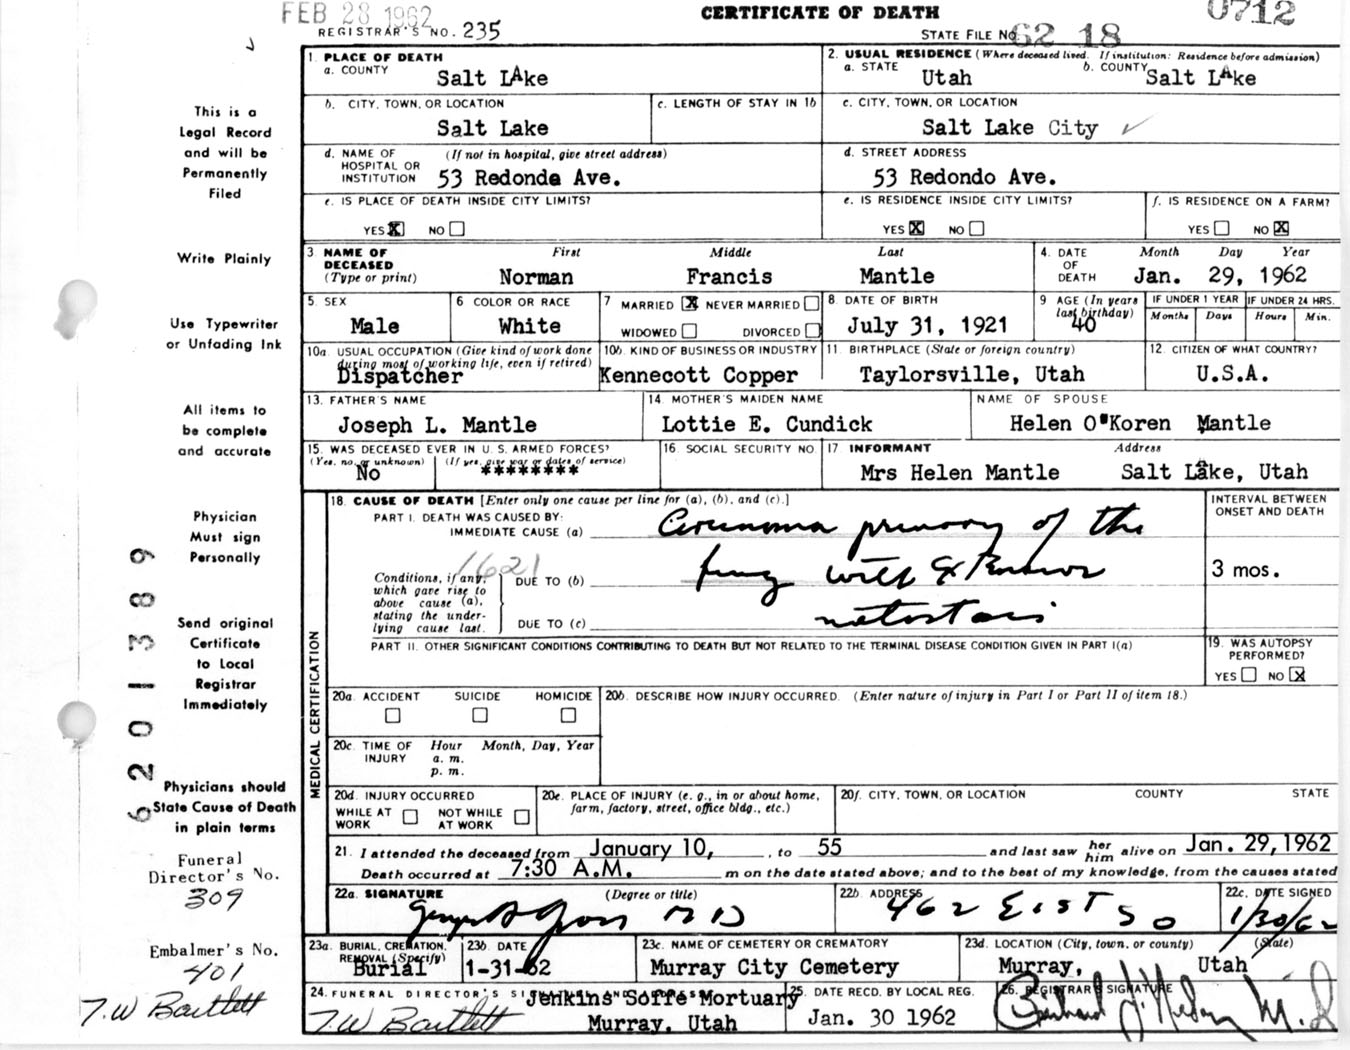 FEB 28 1962
CERTIFICATE OF DEATH
0712
REGISTRAR'S NO. 235
STATE FILE NO. 62 18
This is a
Legal Record
and will be
Permanently
Filed
Write Plainly
Use Typewriter
or Unfading Ink
All items to
be complete
and accurate
Physician
Must sign
Personally
Send original
Certificate
to Local
Registrar
Immediately
Physicians should
State Cause of Death
in plain terms
Funeral
Director's No.
309
Embalmer's No.
401
T.W Bartlett
620 1389
1. PLACE OF DEATH
a. COUNTY Salt LAke
2. USUAL RESIDENCE (Where deceased lived. If institution: Residence before admission)
a. STATE Utah b. COUNTY Salt LAke
b. CITY, TOWN, OR LOCATION Salt Lake
c. LENGTH OF STAY IN 1b
c. CITY, TOWN, OR LOCATION Salt Lake City
d. NAME OF HOSPITAL OR INSTITUTION (If not in hospital, give street address)
53 Redonda Ave.
d. STREET ADDRESS 53 Redondo Ave.
e. IS PLACE OF DEATH INSIDE CITY LIMITS?
YES X NO
e. IS RESIDENCE INSIDE CITY LIMITS?
YES X NO
f. IS RESIDENCE ON A FARM?
YES NO X
3. NAME OF DECEASED (Type or print)
First Middle Last
Norman Francis Mantle
4. DATE OF DEATH Month Day Year
Jan. 29, 1962
5. SEX Male
6 COLOR OR RACE White
7 MARRIED X NEVER MARRIED
WIDOWED DIVORCED
8. DATE OF BIRTH July 31, 1921
9 AGE (In years last birthday) 40
IF UNDER 1 YEAR IF UNDER 24 HRS.
Months Days Hours Min.
10a. USUAL OCCUPATION (Give kind of work done during most of working life, even if retired)
Dispatcher
10b. KIND OF BUSINESS OR INDUSTRY
Kennecott Copper
11. BIRTHPLACE (State or foreign country)
Taylorsville, Utah
12. CITIZEN OF WHAT COUNTRY?
U.S.A.
13. FATHER'S NAME
Joseph L. Mantle
14. MOTHER'S MAIDEN NAME
Lottie E. Cundick
NAME OF SPOUSE
Helen O'Koren Mantle
15. WAS DECEASED EVER IN U. S. ARMED FORCES?
(Yes, no, or unknown) (If yes, give war or dates of service)
No ********
16. SOCIAL SECURITY NO.
17 INFORMANT Address
Mrs Helen Mantle Salt Lake, Utah
MEDICAL CERTIFICATION
18. CAUSE OF DEATH [Enter only one cause per line for (a), (b), and (c).]
INTERVAL BETWEEN ONSET AND DEATH
PART I. DEATH WAS CAUSED BY:
IMMEDIATE CAUSE (a) Carcinoma primary of the
1621
Conditions, if any, which gave rise to above cause (a), stating the underlying cause last.
DUE TO (b) lung with extensive
3 mos.
DUE TO (c) metastasis
PART II. OTHER SIGNIFICANT CONDITIONS CONTRIBUTING TO DEATH BUT NOT RELATED TO THE TERMINAL DISEASE CONDITION GIVEN IN PART I(a)
19. WAS AUTOPSY PERFORMED?
YES NO X
20a. ACCIDENT SUICIDE HOMICIDE
20b. DESCRIBE HOW INJURY OCCURRED. (Enter nature of injury in Part I or Part II of item 18.)
20c. TIME OF INJURY Hour Month, Day, Year
a. m.
p. m.
20d. INJURY OCCURRED
WHILE AT WORK NOT WHILE AT WORK
20e. PLACE OF INJURY (e. g., in or about home, farm, factory, street, office bldg., etc.)
20f. CITY, TOWN, OR LOCATION COUNTY STATE
21. I attended the deceased from January 10, , to 55 and last saw her him alive on Jan. 29, 1962
Death occurred at 7:30 A.M. m on the date stated above; and to the best of my knowledge, from the causes stated
22a. SIGNATURE (Degree or title)
M D
22b. ADDRESS
462 East So
22c. DATE SIGNED
1/30/62
23a. BURIAL, CREMATION, REMOVAL (Specify)
Burial
23b. DATE
1-31-62
23c. NAME OF CEMETERY OR CREMATORY
Murray City Cemetery
23d. LOCATION (City, town, or county) (State)
Murray, Utah
24. FUNERAL DIRECTOR'S SIGNATURE AND ADDRESS
Jenkins Soffe Mortuary
T.W Bartlett Murray, Utah
25. DATE RECD. BY LOCAL REG.
Jan. 30 1962
26. REGISTRAR'S SIGNATURE